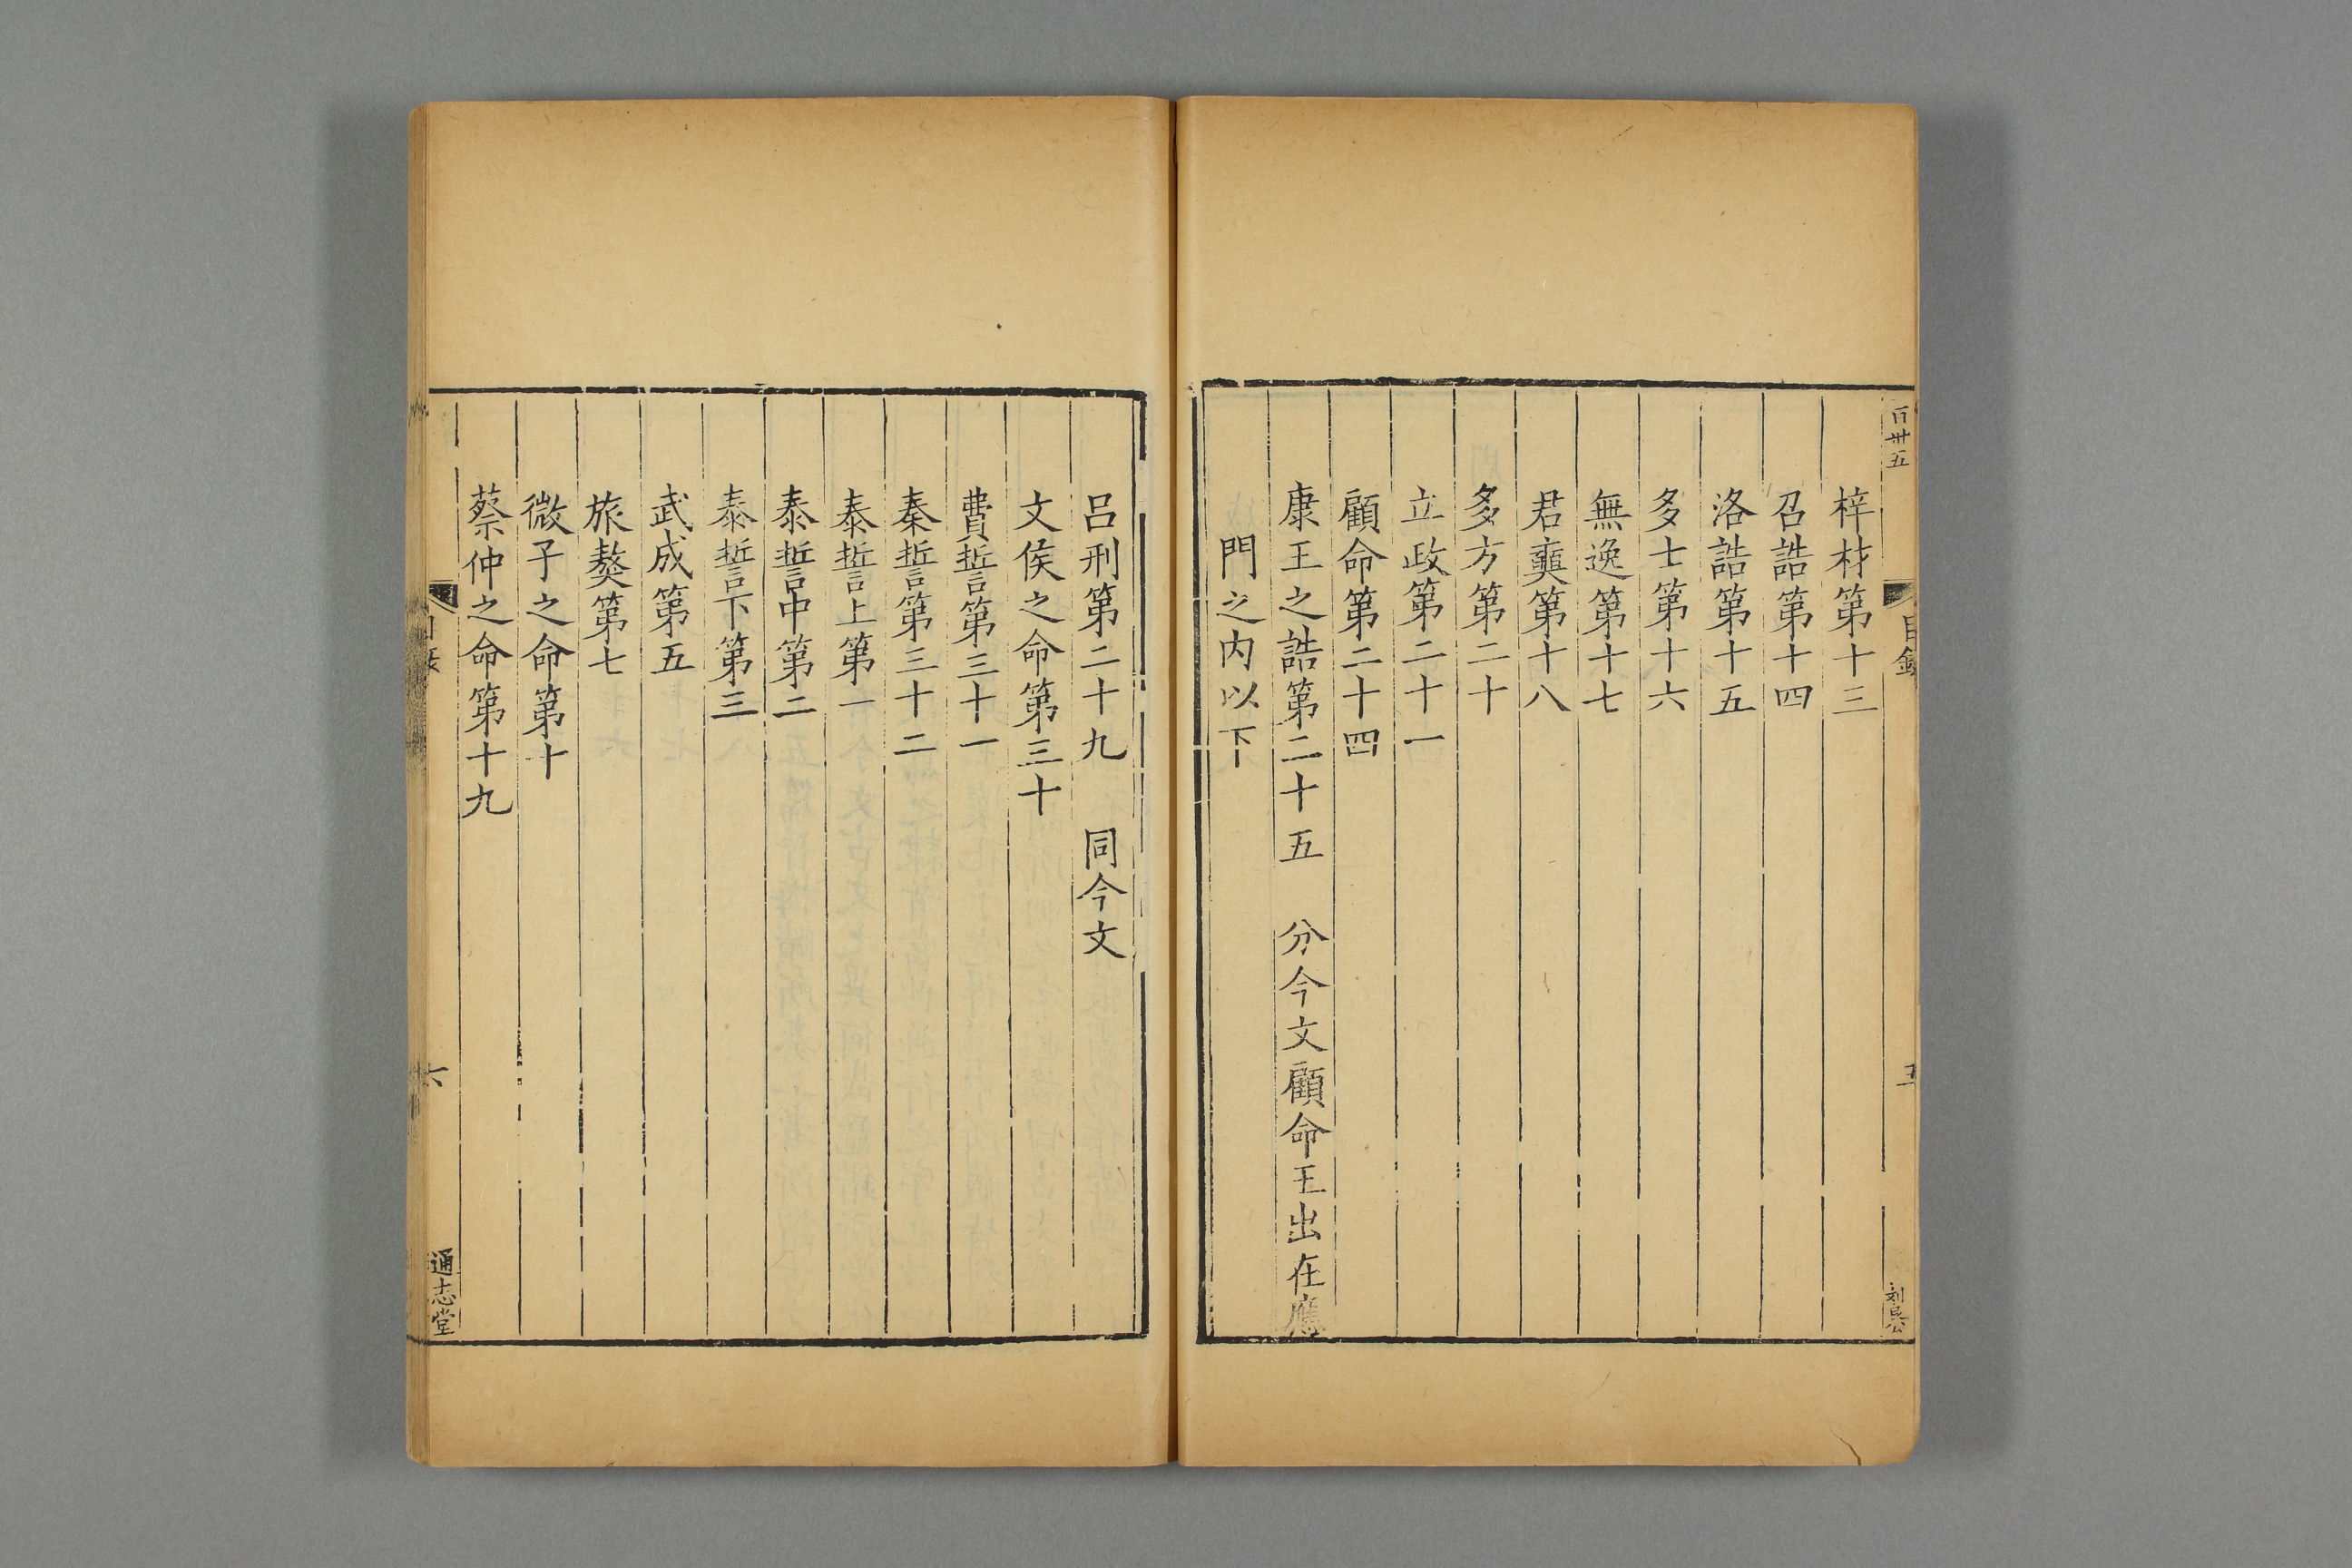 百卅五
目錄
五
梓材第十三
召誥第十四
洛誥第十五
多士第十六
無逸第十七
君奭第十八
多方第二十
立政第二十一
顧命第二十四
康王之誥第二十五 分今文顧命王出在應
門之内以下
呂刑第二十九 同今文
文侯之命第三十
費誓第三十一
秦誓第三十二
泰誓上第一
泰誓中第二
泰誓下第三
武成第五
旅獒第七
微子之命第十
蔡仲之命第十九
目錄
六
通志堂